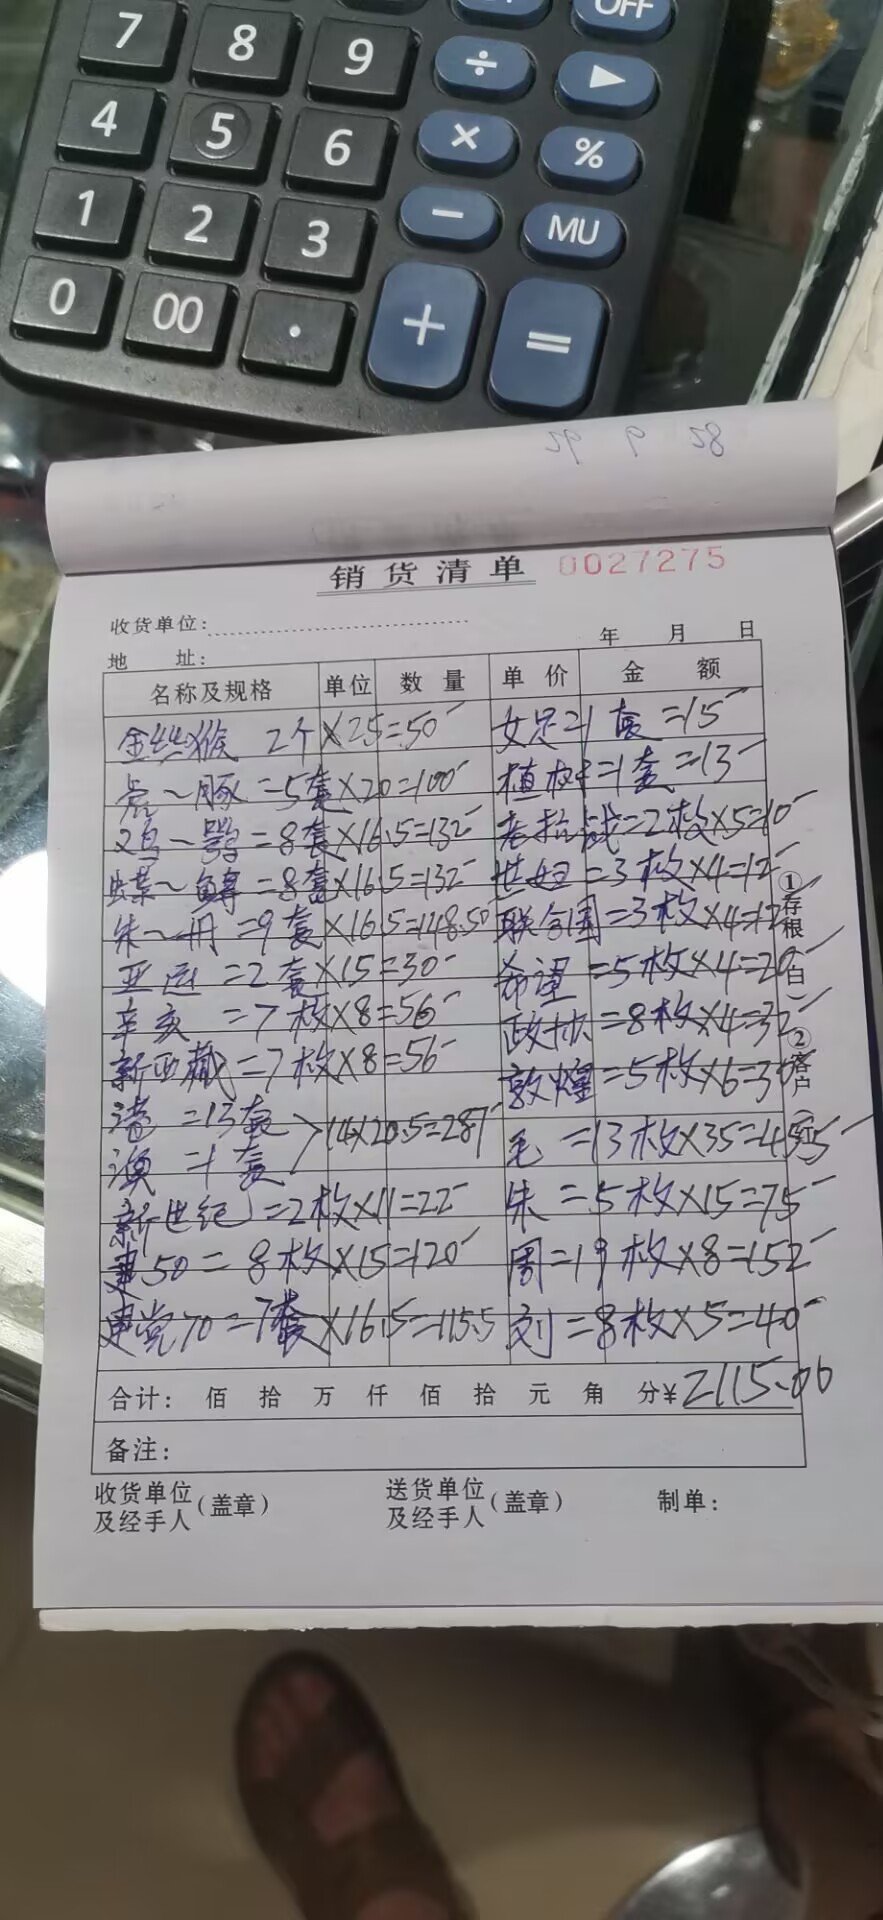 OFF
7 8 9 ÷ ▶
4 5 6 × %
1 2 3 − MU
0 00 . + =
销货清单 0027275
收货单位:
年 月 日
地 址:
名称及规格 单位 数量 单价 金额
金丝猴 2个×25=50 女足=1套=15
虎~豚=5套×20=100 植树=1套=13
鸡~鹗=8套×16.5=132 老抗战=2枚×5=10
蝶~鲟=8套×16.5=132 世妇=3枚×4=12
朱~丹=9套×16.5=148.50 联合国=3枚×4=12
亚运=2套×15=30 希望=5枚×4=20
辛亥=7枚×8=56 政协=8枚×4=32
新西藏=7枚×8=56 敦煌=5枚×6=30
港=13套
澳=1套 >14×20.5=287 毛=13枚×35=455
新世纪=2枚×11=22 朱=5枚×15=75
建50=8枚×15=120 周=19枚×8=152
建党70=7套×16.5=115.5 刘=8枚×5=40
合计: 佰 拾 万 仟 佰 拾 元 角 分¥2115.00
备注:
收货单位及经手人(盖章) 送货单位及经手人(盖章) 制单:
①存根(白) ②客户